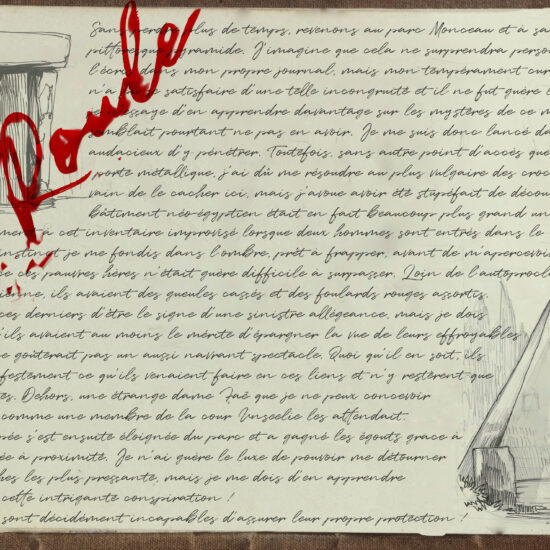 Roule
Sans perdre plus de temps, revenons au parc Monceau et à sa
pittoresque pyramide. J'imagine que cela ne surprendra perso
l'écrire dans mon propre journal, mais mon tempérament cur
satisfaire d'une telle incongruité et il ne fut guère
d'en apprendre davantage sur les mystères de ce m
semblait pourtant ne pas en avoir. Je me suis donc lancé da
audacieux d'y pénétrer. Toutefois, sans autre point d'accès que
porte métallique, j'ai dû me résoudre au plus vulgaire des croc
vain de le cacher ici, mais j'avoue avoir été stupéfait de décou
bâtiment néo-égyptien était en fait beaucoup plus grand un
ment à cet inventaire improvisé lorsque deux hommes sont entrés dans le
instinct je me fondis dans l'ombre, prêt à frapper, avant de m'apercevoi
ces pauvres hères n'était guère difficile à surpasser. Loin de l'autoprocla
ienne, ils avaient des gueules cassés et des foulards rouges assortis.
ces derniers d'être le signe d'une sinistre allégeance, mais je dois
'ils avaient au moins le mérite d'épargner la vue de leurs effroyables
e goûterait pas un aussi navrant spectacle. Quoi qu'il en soit, ils
festement ce qu'ils venaient faire en ces lieux et n'y restèrent que
es. Dehors, une étrange dame Faë que je ne peux concevoir
comme une membre de la cour Unseelie les attendait.
pée s'est ensuite éloignée du parc et a gagné les égouts grâce à
ée à proximité. Je n'ai guère le luxe de pouvoir me détourner
hes les plus pressante, mais je me dois d'en apprendre
cette intrigante conspiration !
sont décidément incapables d'assurer leur propre protection !